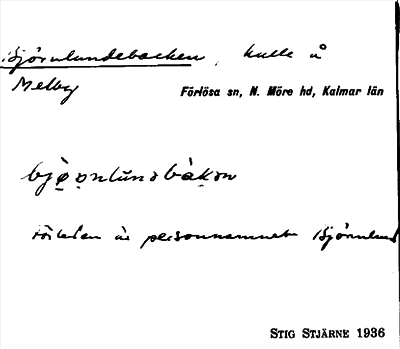 Björnlundebacken, kulle å
Melby
Förlösa sn, N. Möre hd, Kalmar län
bjø̯ɒnlŭnsbàkɒn
Förleden är personnamnet Björnlund
STIG STJÄRNE 1936